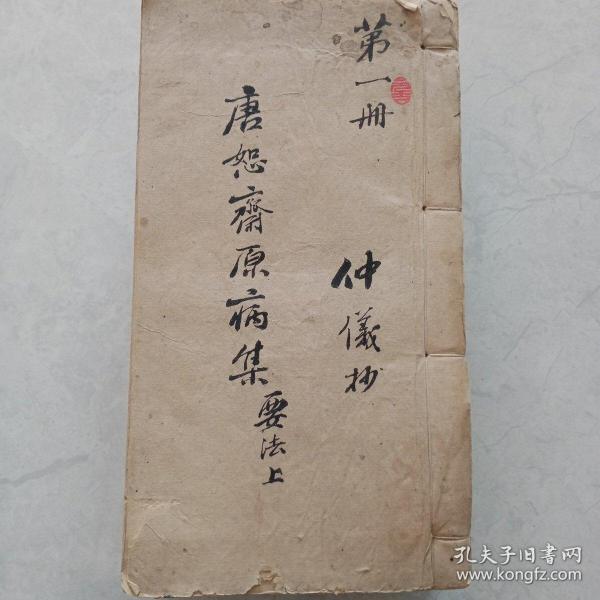 第一册
仲儀抄
唐恕齋原病集
要法上
孔夫子旧书网
www.kongfz.com